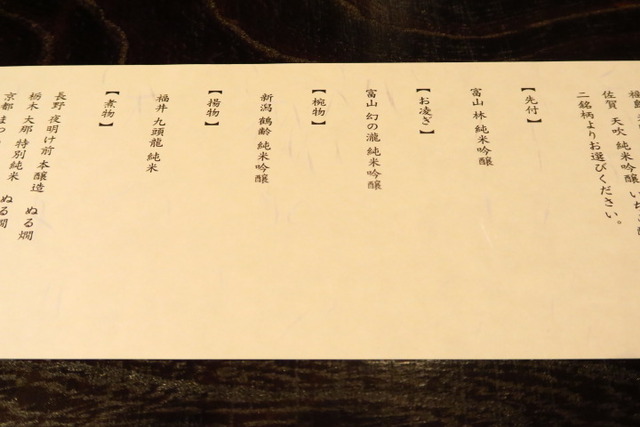 佐賀 天吹 純米吟醸 いちご
二銘柄よりお選びください。
【先付】
富山 林 純米吟醸
【お凌ぎ】
富山 幻の瀧 純米吟醸
【椀物】
新潟 鶴齢 純米吟醸
【揚物】
福井 九頭龍 純米
【煮物】
長野 夜明け前 本醸造 ぬる燗
栃木 大那 特別純米 ぬる燗
京都